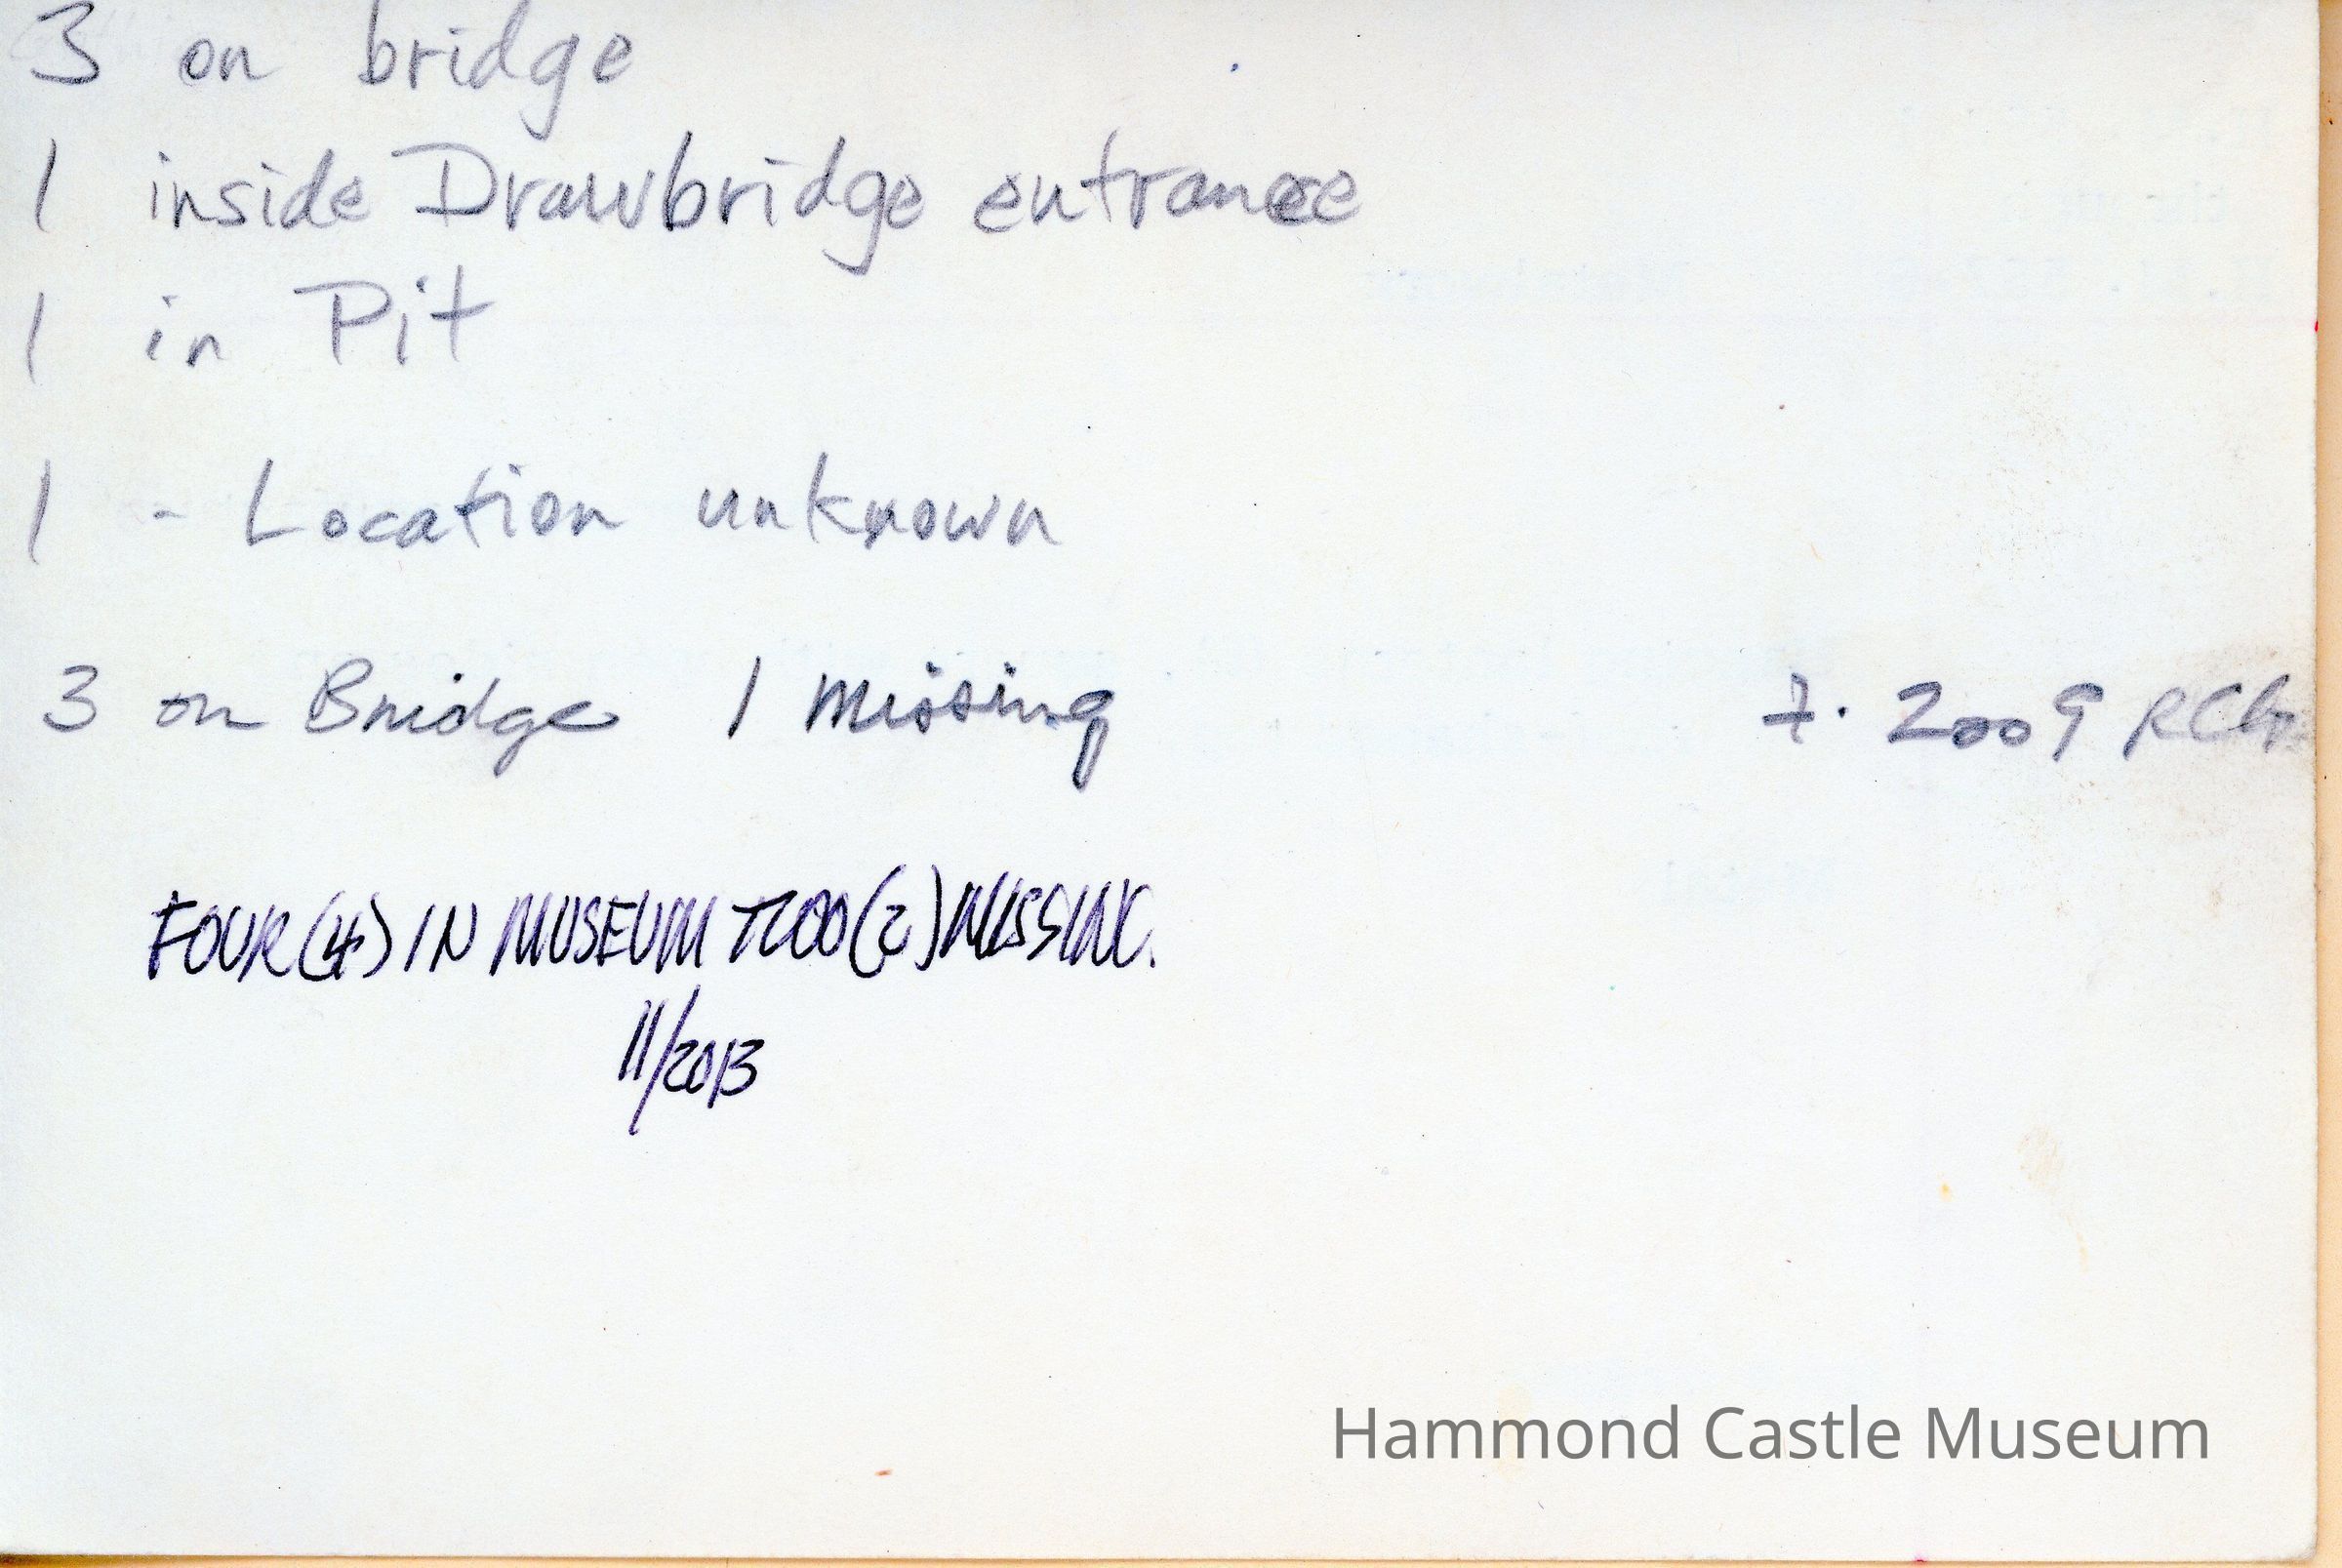 3 on bridge
1 inside Drawbridge entrance
1 in Pit
1 - Location unknown
3 on Bridge 1 missing 7. 2009 RCG
FOUR (4) IN MUSEUM TWO (2) MISSING.
11/2013
Hammond Castle Museum